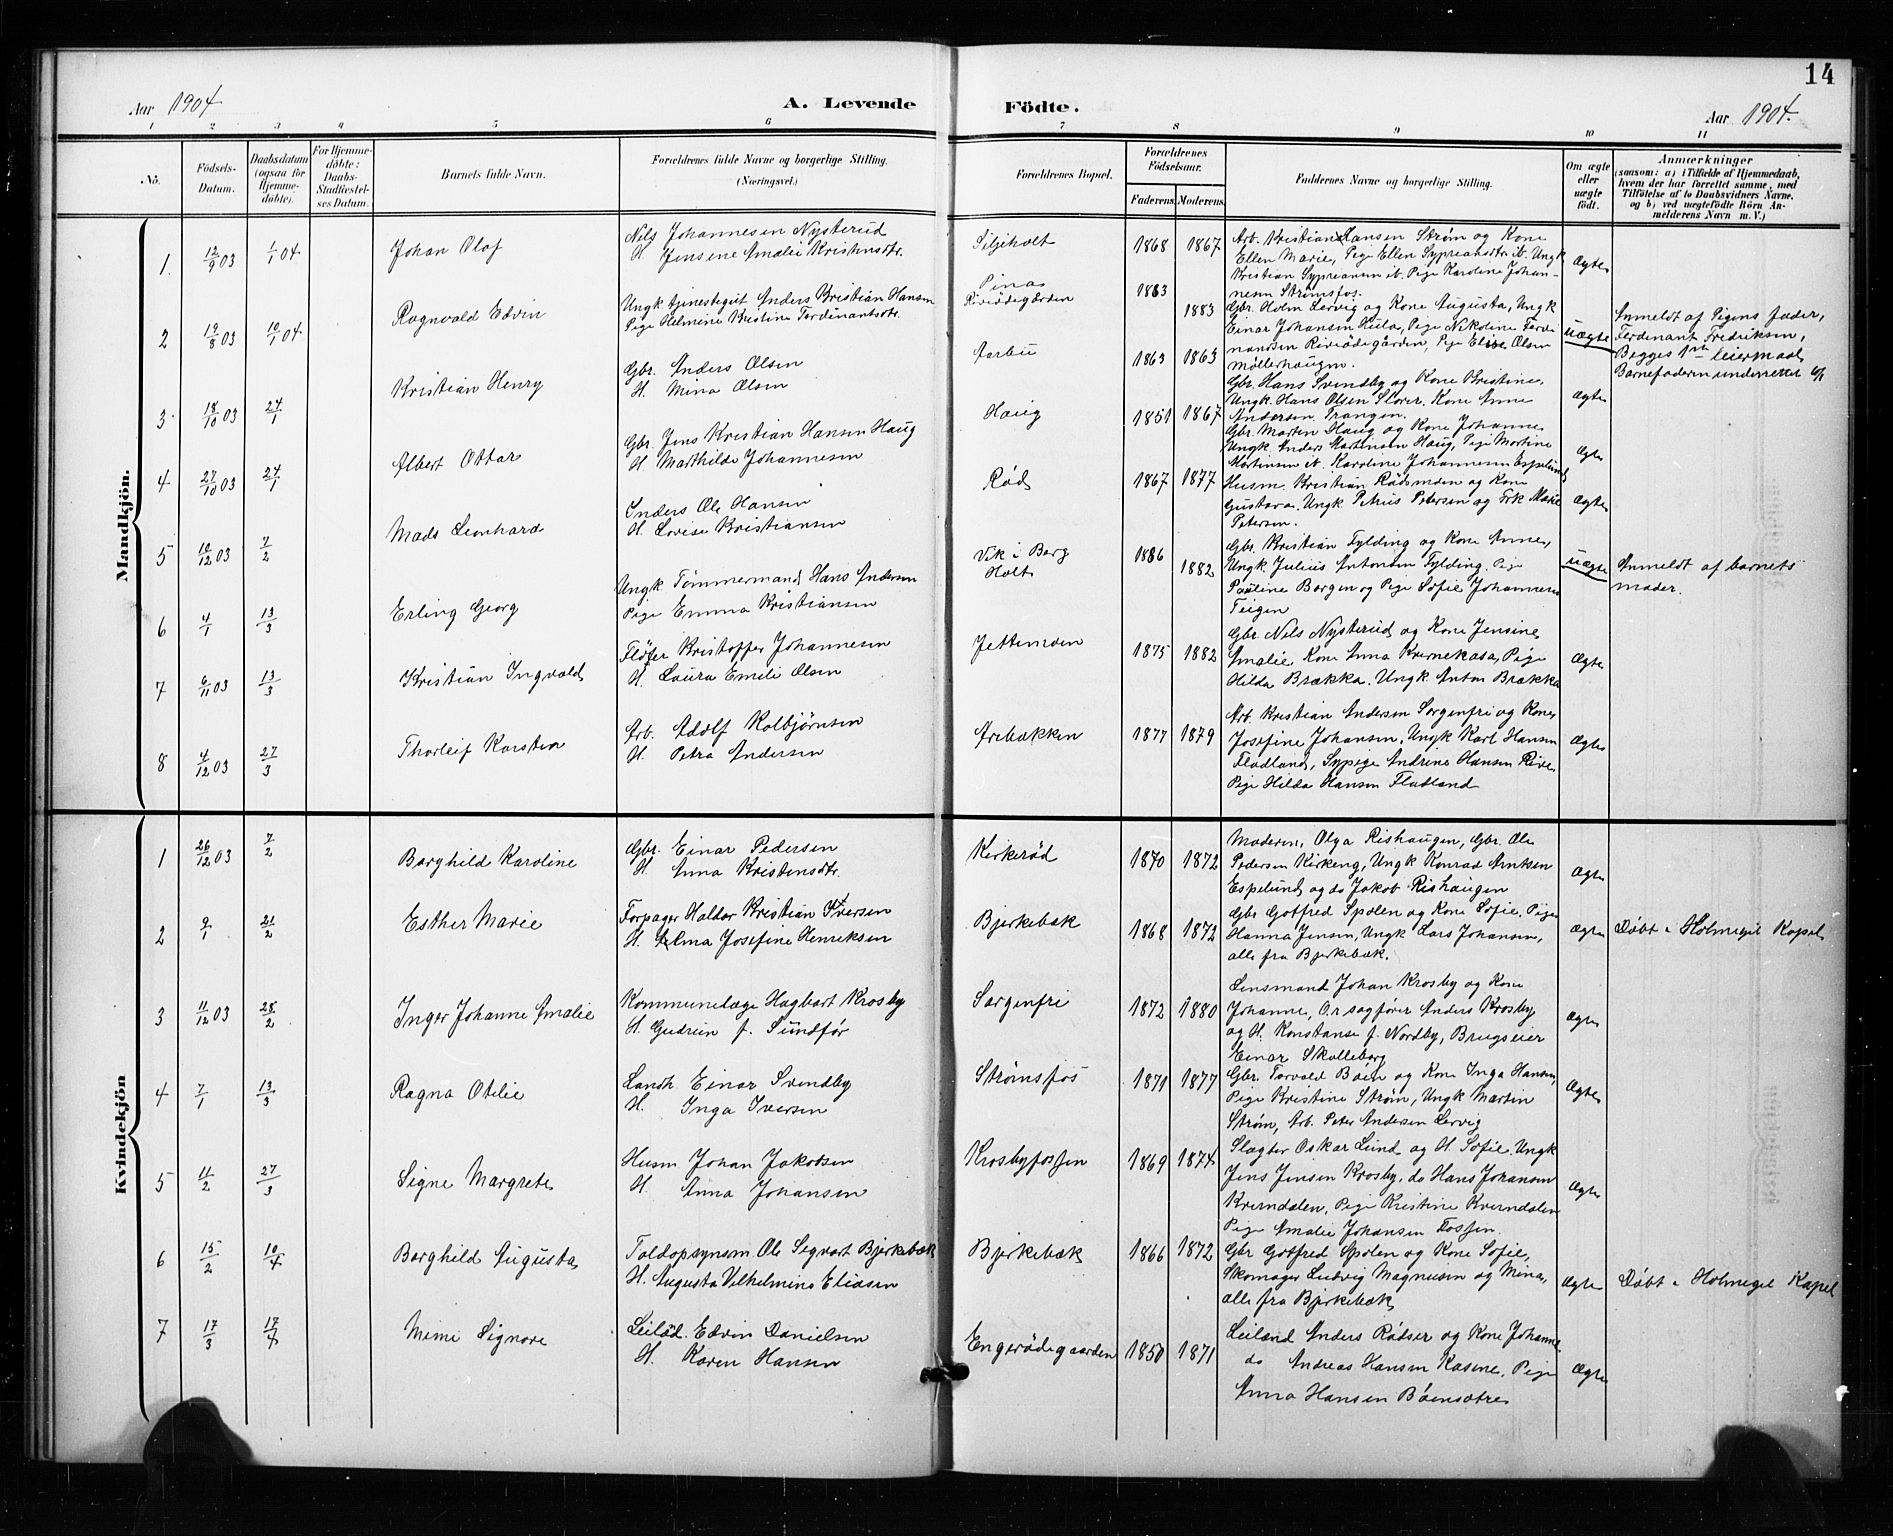 14
Aar 1904. A. Levende Födte. Aar 1904.
1 2 3 4 5 6 7 8 9 10 11
No. Födsels-Datum. Daabsdatum (ogsaa for Hjemme-döbte). For Hjemme-döbte: Daabs-Stadfæstel-ses Datum. Barnets fulde Navn. Forældrenes fulde Navne og borgerlige Stilling. (Næringsvei.) Forældrenes Bopæl. Forældrenes Födselsaar. Faderens. Moderens. Faddernes Navne og borgerlige Stilling. Om ægte eller uægte födt. Anmærkninger (saasom: a) i Tilfælde af Hjemmedaab, hvem der har forrettet samme, med Tilföielse af to Daabsvidners Navne, og b) ved uægtefödte Börn An-melderens Navn m. V.)
Mandkjön.
1. 12/9 03 1/1 04 Johan Olaf
Nils Johannesen Nysterud
H. Jensine Amalie Kristensdtr.
Siljeholt 1868 1867
Arb. Kristian Hansen Strøm og Kone
Ellen Marie, Pige Ellen Sypreansdtr ib. Ungk
Kristian Sypreansen ib. Pige Karoline Johan-
nesen Strømsfos.
Ægte
2 19/8 03 10/1 04 Ragnvald Edvin
Ungk tjenestegut Anders Kristian Hansen
Pige Helmine Kristine Ferdinantsdtr.
Riviødegården 1883 1883
Gbr. Holm Lervig og Kone Augusta, Ungk
Einar Johansen Hula, Pige Nikoline Ferdi-
nandsen Rivrødegården, Pige Elise Olsen
Møllerhaugen.
Uægte
Anmeldt af Pigens fader,
Ferdenant Fredriksen,
Begges 1ste leiermaal
Barnefaderen underrettet
3 18/10 03 24/1 Kristian Henry
Gbr. Anders Olsen
H. Mina Olsen
Aarbu 1863 1863
Gbr. Hans Svendby og Kone Kristine,
Ungk. Hans Olsen Slorer. Kone Anne
Andersen Prangen.
Ægte
4 27/10 03 24/1 Albert Ottar
Gbr. Jens Kristian Hansen Haug
H. Marthilde Johannesen
Haug 1851 1867
Gbr. Martin Haug og Kone Johanne
Ungk Anders Martinsen Haug, Pige Martine
Martinsen ib. Karoline Johannesen Espelund
Ægte
5 10/12 03 7/2 Mads Leonhard
Inders Ole Hansen
H. Lovise Kristiansen
Rød 1867 1877
Husm. Kristian Rødsmoen og Kone
Gustava. Ungk Petrus Petersen og Frk Marie
Petersen.
Ægte
6 4/1 13/3 Erling Georg
Ungk Tømmermand Hans Andersen
Pige Emma Kristiansen
Vik i Borg
Holt 1886 1882
Gbr. Kristian Fylding og Kone Anne,
Ungk. Julius Antonsen Fylding, Pige
Pauline Borgen og Pige Sofie Johannesen
Teigen
Uægte
Anmeldt af barnets
moder.
7 6/11 03 13/3 Kristian Ingvald
Fløter Kristoffer Johannesen
H. Laura Emilie Olsen
Jettemoen 1875 1882
Gbr Nils Nysterud og Kone Jensine
Amalie, Kone Anna Kvernekasa, Pige
Hilda Brækka. Ungk Anton Brækka
Ægte
8 4/12 03 27/3 Thorleif Karsten
Arb. Adolf Kolbjørnsen
H. Petra Andersen
Arebakken 1877 1879
Arb. Kristian Andersen Sorgenfri og Kone
Josefine Johansen, Ungk Karl Hansen
Fladland, Sypige Andrine Hansen Rive,
Pige Hilda Hansen Fladland
Ægte
Kvindekjön
1 26/12 03 7/2 Borghild Karoline
Gbr. Einar Pedersen
H. Anna Kristensdtr.
Kirkerød 1870 1872
Moderen, Olga Rishaugen, Gbr. Ole
Pedersen Kirkeng, Ungk Konrad Arntsen
Espelund og do Jakob Rishaugen
Ægte
2 9/1 21/2 Esther Marie
Forpagter Haldor Kristian Iversen
H. Alma Josefine Henriksen
Bjerkebæk 1868 1872
Gbr Gotfred Spolen og Kone Sofie, Pige
Hanna Jensen, Ungk Lars Johansen,
alle fra Bjerkebæk.
Ægte
Døbt i Holmegil Kapel
3 11/12 03 28/2 Inger Johanne Amalie
Kommunelæge Hagbart Krosby
H. Gudrun f. Sundfør
Sorgenfri 1872 1880
Lensmand Johan Krosby og Kone
Johanne, O.r.sagfører Anders Krosby
og H. Konstanse f. Nordby, Brugseier
Einar Skolleborg
Ægte
4 7/1 13/3 Ragna Otilie
Landh. Einar Svendby
H. Inga Iversen
Strømsfos 1871 1877
Gbr. Torvald Bøen og Kone Inga Hansen,
Pige Kristine Strøm, Ungk Martin
Strøm, Arb. Peter Andersen Lervig
Ægte
5 11/2 27/3 Signe Margrete
Husm Johan Jakobsen
H. Anna Johansen
Krosbyfossen 1869 1874
Slagter Oskar Lund og H. Sofie. Ungk
Jens Jensen Krosby, do Hans Johansen
Kverndalen, Pige Kristine Kverndalen
Pige Amalie Johansen Fossen
Ægte
6 15/2 10/4 Borghild Augusta
Toldopsynsm. Ole Sigvart Bjerkebæk
H. Augusta Vilhelmine Eliasen
Bjerkebæk 1866 1872
Gbr Gotfred Spolen og Kone Sofie,
Skomager Ludvig Magnusen og Mina,
alle fra Bjerkebæk
Ægte
Døbt i Holmegil Kapel
7 17/3 17/4 Mimi Signora
Leiland. Edvin Danielsen
H. Karen Hansen
Engerødegaarden 1850 1871
Leiland Anders Rødser og Kone Johanne
do Andreas Hansen Kasene, Pige
Anna Hansen Bøensætre
Ægte